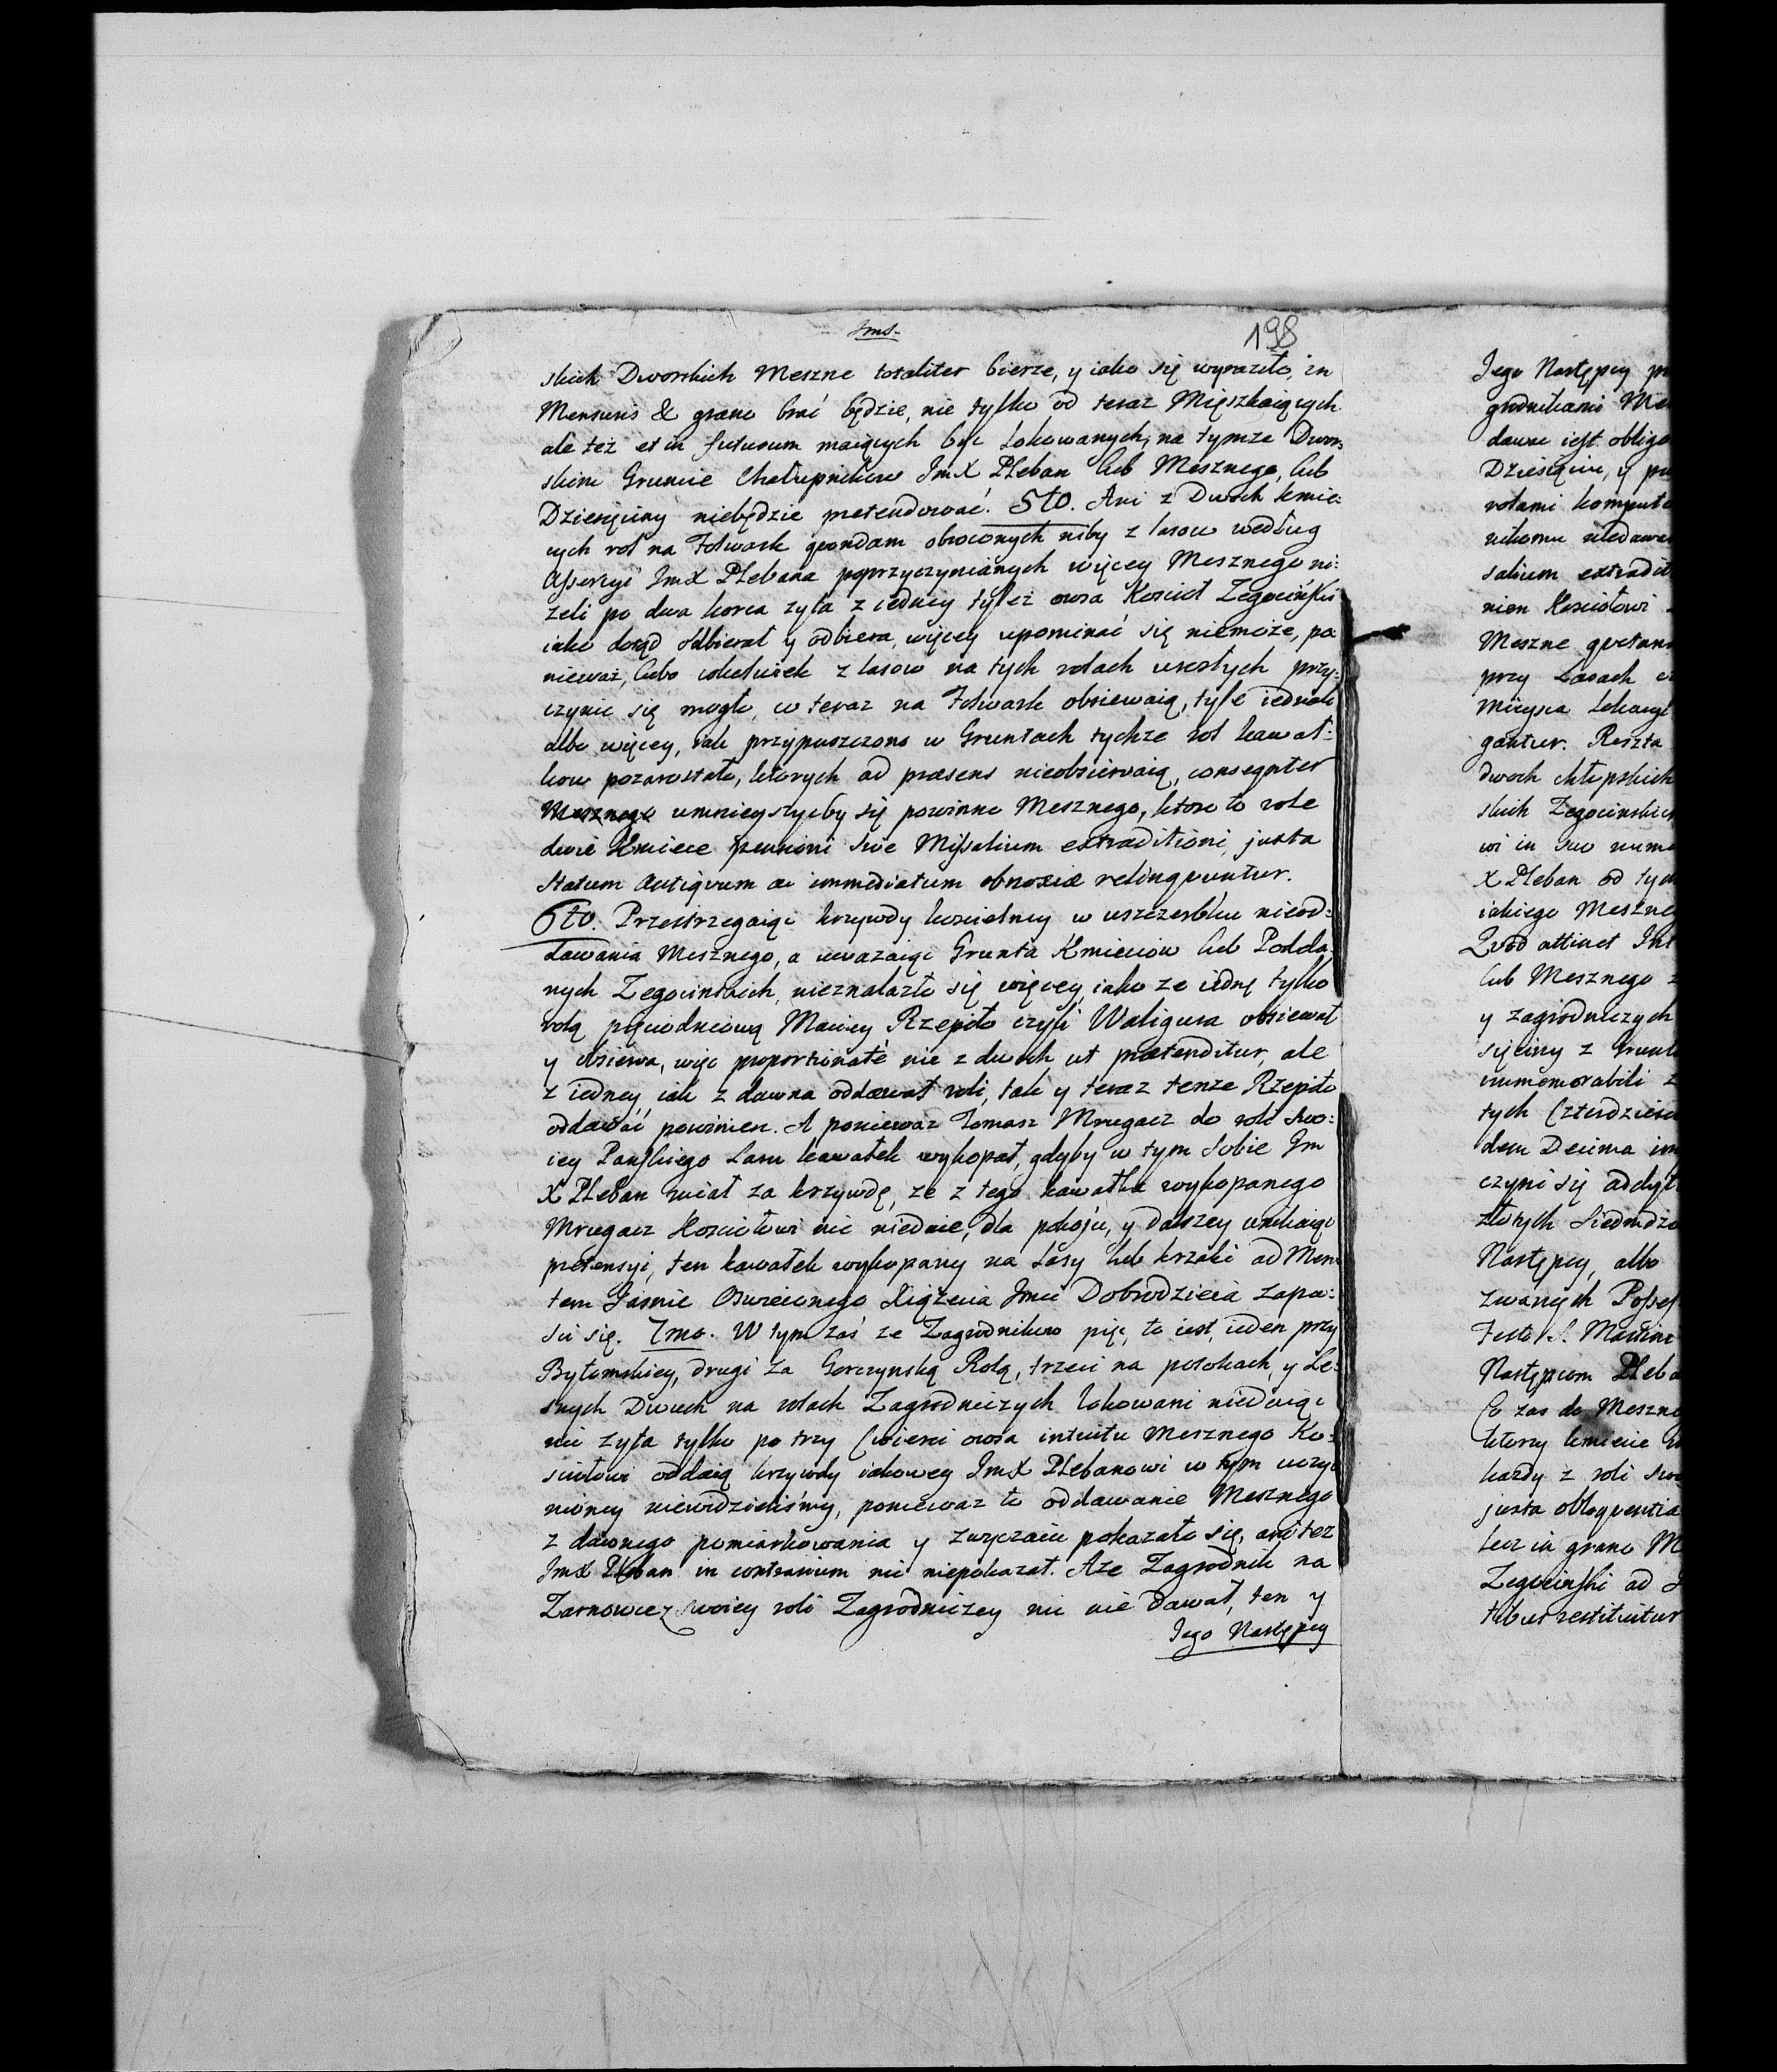 Jms.
198
skich Dworskich Meszne totaliter bierze, y iako się wyraziło, in
Mensuris & grano brać będzie, nie tylko od teraz Mięszkaiących
ale też et in futurum maiących bydź Lokowanych, na tymże Dwor,
skim Gruncie Chałupnikow JmX Pleban lub Mesznego, lub
Dziesięciny niebędzie pretendować. 5to. Ani z Dwoch kmie:
cych rol na Folwark quondam obroconych niby z lasow według
Assercyi JmX Plebana poprzyczynianych więcey Mesznego ni:
żeli po dwa korca zyta z iedney tyleż owsa Kościoł Zegociński
iako dotąd odbierał y odbiera, więcey upominać się niemoże, po
nieważ, lubo cokolwiek z lasow na tych rolach urosłych przy:
czynić się mogło, co teraz na Folwark obsiewaią, tyle iednak
albo więcey, iak przypuszczono w Gruntach tychże rol kawał:
kow pozarostało, ktorych ad præsens nieobsiewaią, conseqnter
Mesznego umnieyszyćby się powinno Mesznego, ktore to role
dwie Kmiece pensioni sive Missalium extraditioni, juxta
Statum antiquum ac immediatum obnoxiæ relinquuntur.
6to. Przestrzegaiąc krzywdy kościelney w uszczerbku nieod:
dawania Mesznego, a uważaiąc Grunta Kmieciow lub Podda,
nych Zegocinskich, nieznalazło się więcey, iako ze iednę tylko
rolą pięciodniową Maciey Rzepiło czyli Waligura obsiewał
y obsiewa, więc proportionaté nie z dwoch ut prætenditur, ale
z iedney iak z dawna oddawał roli, tak y teraz tenze Rzepiło
oddawać powinien. A poniewaz Tomasz Mrugacz do roli swo:
iey Pańskiego Lasu kawałek wykopał, gdyby w tym sobie Jm
X Pleban miał za krzywdę, ze z tego kawałka wykopanego
Mrugacz Kościołowi nic niedaie, dla pokoju, y dalszey unikaiąc
pretensyi, ten kawałek wykopany na Lasy lub krzaki ad Men
tem Jaśnie Oswieconego Xiążęcia Jmci Dobrodzieia zapu:
ści się. 7mo. W tym zaś ze Zagrodnikow pięć, to iest, ieden przy
Bytomskiey, drugi za Gorczynską Rolą, trzeci na potokach, y Le:
snych Dwuch na rolach Zagrodniczych lokowani niedaiąc
nic zyta tylko po trzy Cwierci owsa intuitu Mesznego Ko:
ściołowi oddaią krzywdy iakowey JmX Plebanowi w tym uczy:
nioney niewidzieliśmy, poniewaz to oddawanie Mesznego
z dawnego pomiarkowania y zwyczaiu pokazało się, ani tez
JmX Pleban in contrarium nic niepokazał. Aze Zagrodnik na
Zarnowcez swoiey roli Zagrodniczey nic nie dawał, ten y
Jego Następcy
Jego Następcy
grodnikami
dawac iest
Dziesięciny, y
rolami
nikomu
salium
nien Kościołowi
Meszne
przy Lasach
Mieysca
gantur. Reszta
dwoch chłopskich
skich Zegocinskich
wi in suo
X Pleban od tych
iakiego
Quod attinet
lub Mesznego z
y zagrodniczych
sięciny z
immemorabili z
tych
dem Decima
czyni się
złotych
Następcy, albo
zwanych
Festo S.
Następcom
Co zas do
ktorzy kmiecie
kazdy z roli
juxta
lecz in grano
Zegocinski ad
restituitur